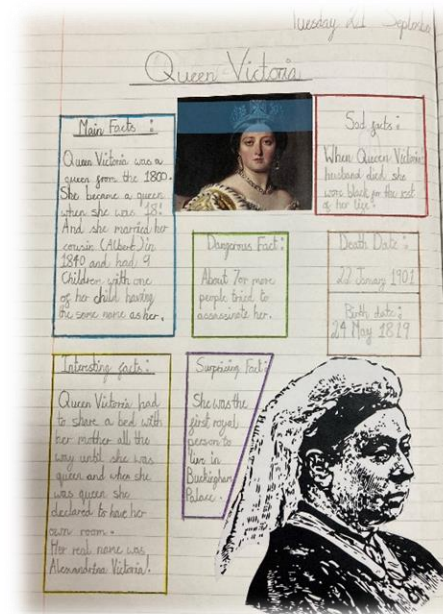 Tuesday 21 September
Queen Victoria
Main Facts :
Queen Victoria was a
queen from the 1800.
She became a queen
when she was 18!
And she married her
cousin (Albert) in
1840 and had 9
Children with one
of her child having
the same name as her.
Sad facts :
When Queen Victoria
husband died she
wore black for the rest
of her life.
Dangerous Fact :
About 7 or more
people tried to
assassinate her.
Death Date :
22 Janury 1901
Birth date :
24 May 1819
Interesting facts :
Queen Victoria had
to share a bed with
her mother all the
way until she was
queen and when she
was queen she
declared to have her
own room.
Her real name was
Alexandrina Victoria!
Surprising Fact :
She was the
first royal
person to
live in
Buckingham
Palace.